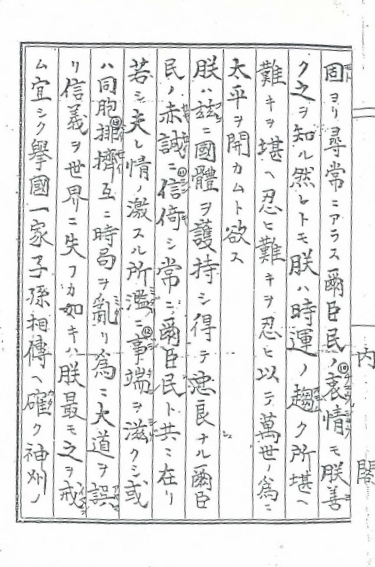 内閣
固ヨリ尋常ニアラス爾臣民ノ衷情モ朕善
ク之ヲ知ル然レトモ朕ハ時運ノ趨ク所堪ヘ
難キヲ堪ヘ忍ヒ難キヲ忍ヒ以テ萬世ノ為ニ
太平ヲ開カムト欲ス
朕ハ茲ニ國體ヲ護持シ得テ忠良ナル爾臣
民ノ赤誠ニ信倚シ常ニ爾臣民ト共ニ在リ
若シ夫レ情ノ激スル所濫ニ事端ヲ滋クシ或
ハ同胞排擠互ニ時局ヲ亂リ為ニ大道ヲ誤
リ信義ヲ世界ニ失フカ如キハ朕最モ之ヲ戒
ム宜シク擧國一家子孫相傳ヘ確ク神州ノ